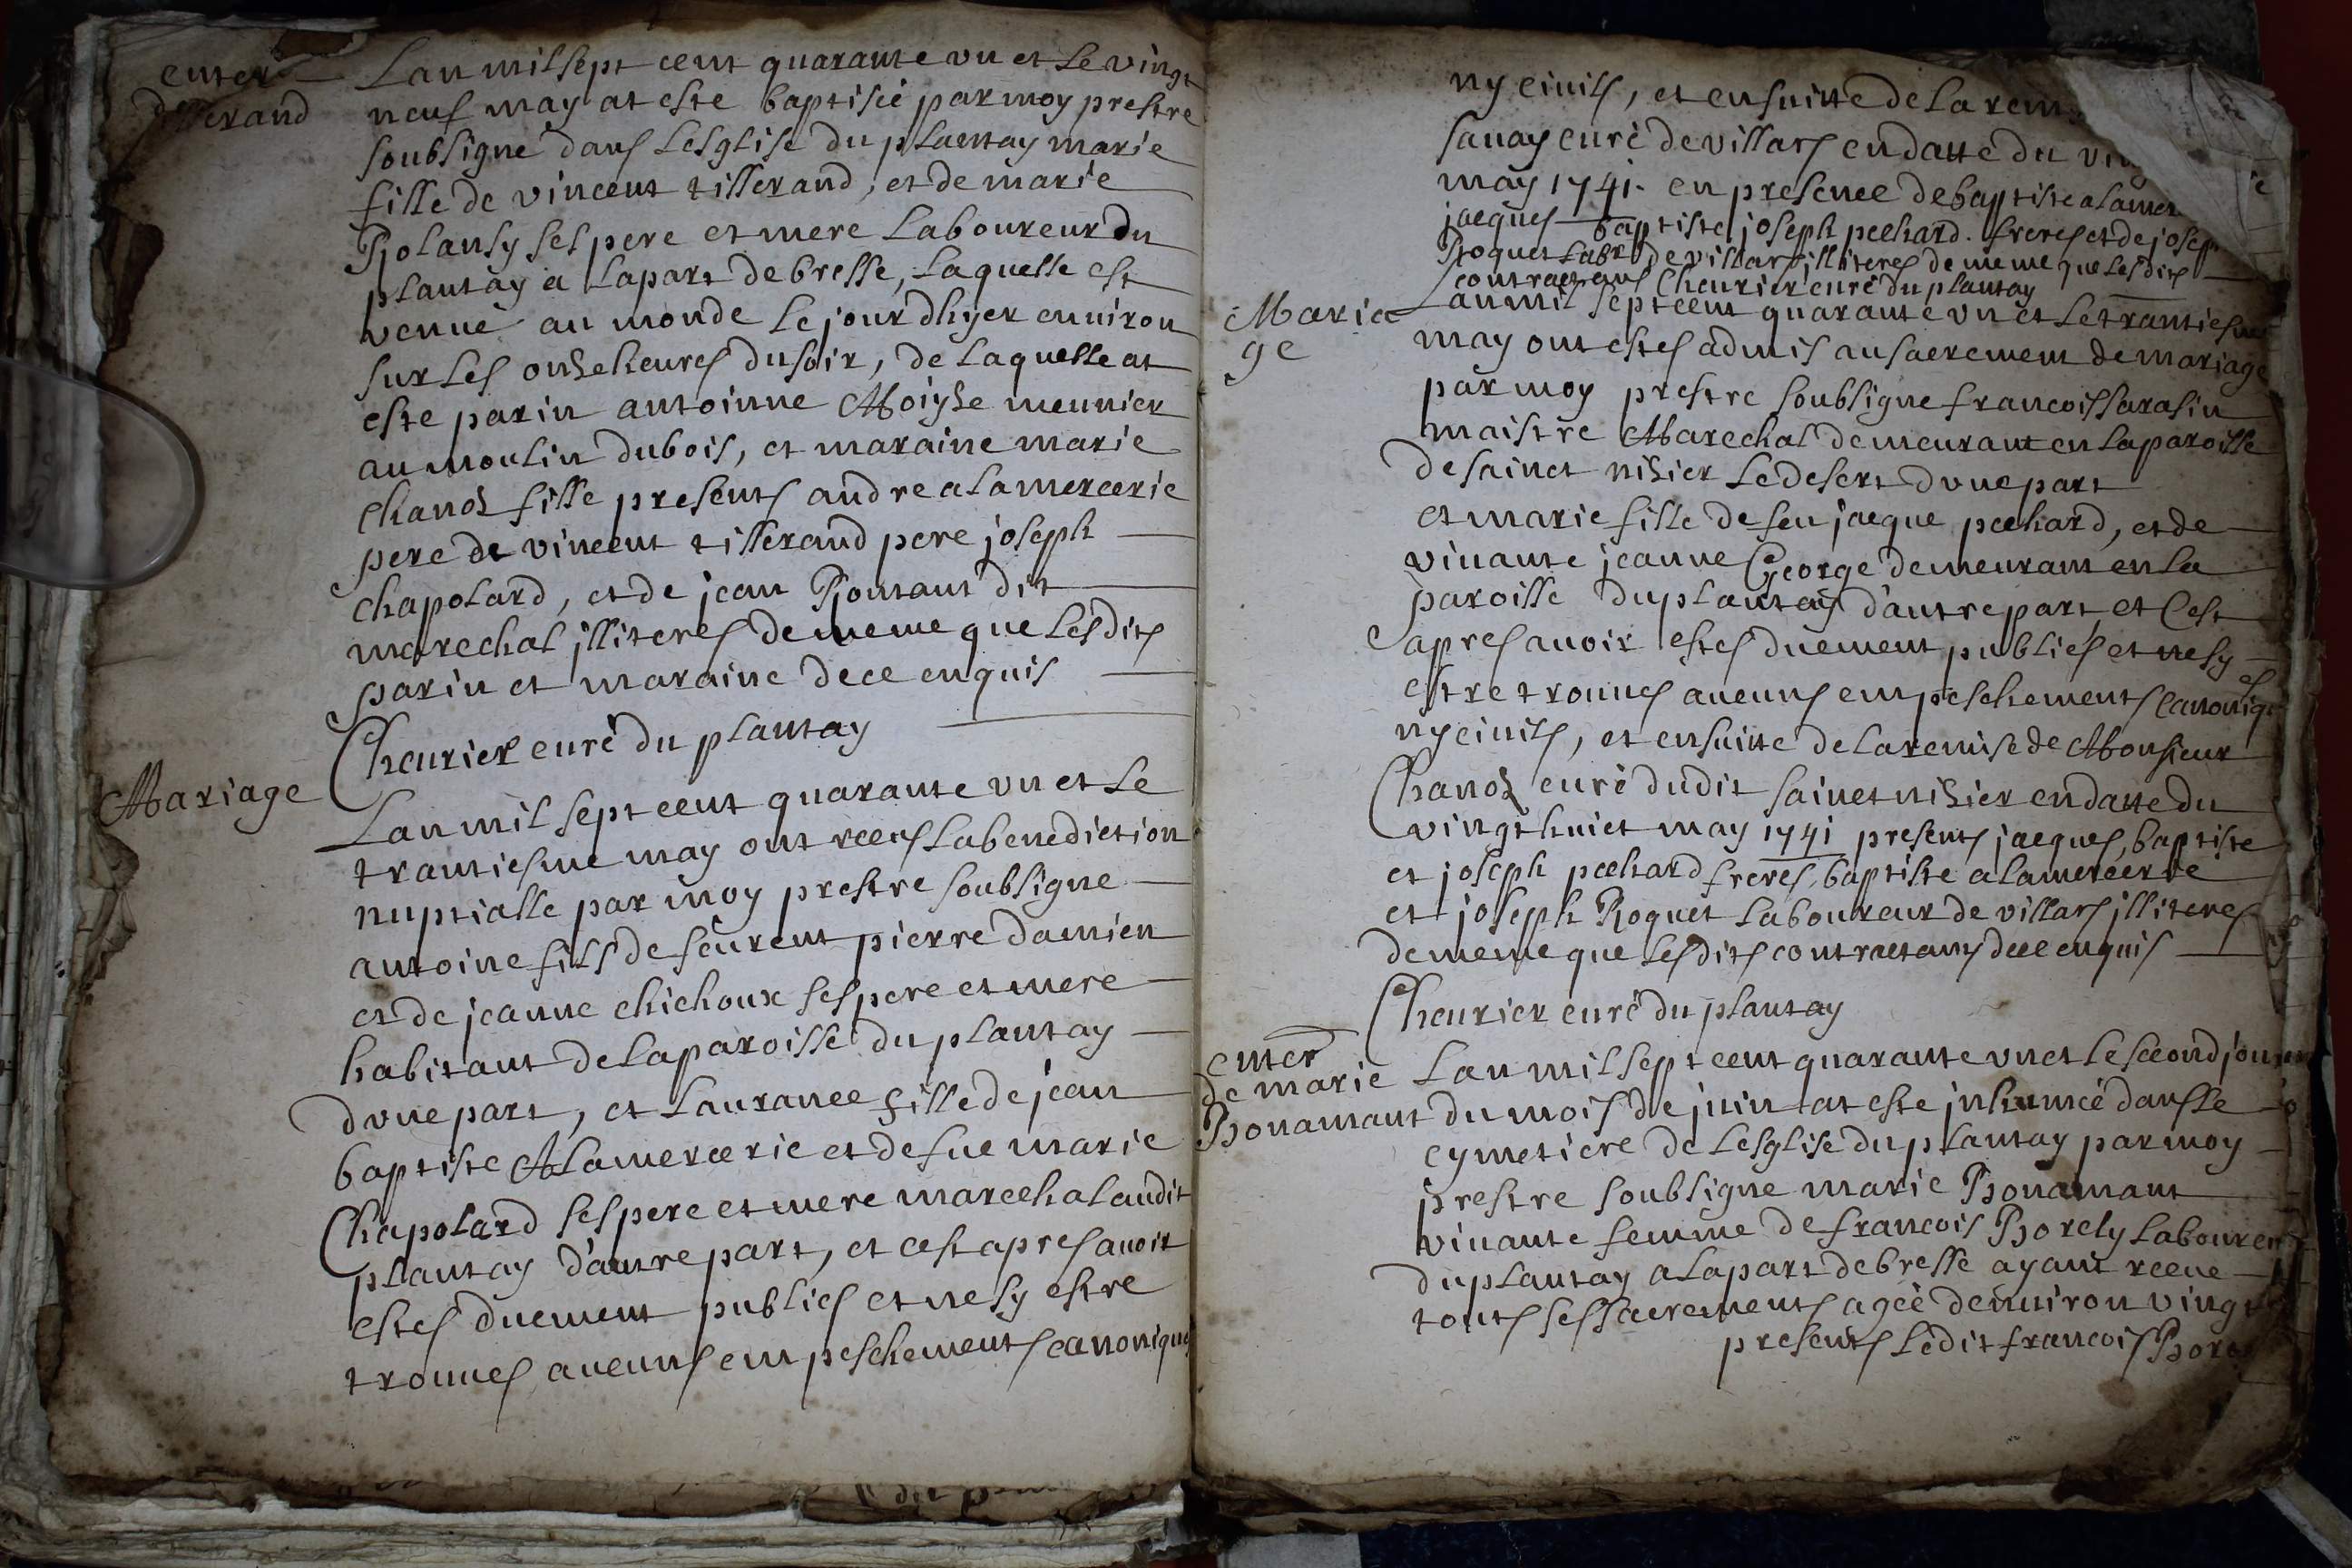 enter
Lan mil sept cent quarante vn et le vingt
neuf may at este baptisée par moy prestre
soubsigne dans Lesglise du plantay marie
fille de vincent tisserand, et de marie
Rolansy ses pere et mere Laboureur du
plantay a Lapart de bresse, Laquelle est
venue au monde le jour dhyer enuiron
sur Les onze heures du soir, de Laquelle at
este parin antoinne Moyse meunier
au moulin du bois, et maraine marie
Chanoz fille presents andre alamercerie
pere de vincent tisserand pere joseph
chapolard, et de jean dit
marechal jlliteres de meme que Lesdits
parin et maraine de ce enquis
Cheurier curé du plantay
Mariage
Lan mil sept cent quarante vn et Le
trantiesme may ont recus Labenediction
nuptialle par moy prestre soubsigne
antoine fils de pierre damien
et de jeanne chichoux ses pere et mere
habitant de Laparoisse du plantay
dvne part, et Laurance fille de jean
baptiste Alamercerie et de fue marie
Chapolard ses pere et mere marechal audit
plantay d'autre part, et cest apres auoir
estes duement publies et ne sy estre
trouues aucuns empeschements canoniques
ny ciuils, et ensuitte de La
sauay curé de villars en datte du
may 1741. en presence de baptiste
jacques baptiste joseph pechard. freres et de
Roquet Labr de villars jlliteres de meme que Lesdits
contractans Cheurier curé du plantay
Maria
ge
Lan mil sept cent quarante vn et Le trantiesme
may ont estes admis au sacrement de mariage
par moy prestre soubsigne francois sarasin
maistre Marechal demeurant en Laparoisse
de sainct nizier Le desert dvne part
et marie fille de feu jacque pechard, et de
viuante jeanne George demeurant en La
paroisse du plantay d'autre part, et Cest
apres auoir estes duement publies et ne sy
estre trouues aucuns empeschements canoniques
ny ciuils, et ensuitte de La remise de Monsieur
Chanoz curé dudit sainct nizier en datte du
vingt huict may 1741 presents jacques, baptiste
et joseph pechard freres, baptiste alamercerie
et joseph Roquet Laboureur de villars jlliteres
de meme que Lesdits contractans de ce enquis
Cheurier curé du plantay
enter
de marie
Bonamant
Lan mil sept cent quarante vn et Le second jour
du mois de juin at este jnhumée dans Le
cymetiere de Lesglise du plantay par moy
prestre soubsigne marie Bonamant
viuante femme de francois Borely
du plantay a Lapart de bresse ayant receue
touts ses sacrements agée denuiron vingt
presents Ledit francois